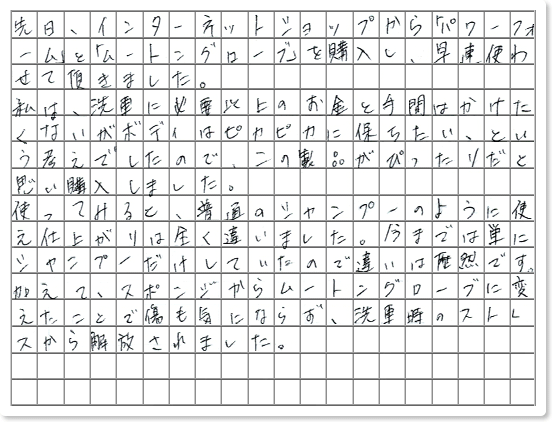 先日、インターネットショップから「パワーフォ
ーム」と「ムートングローブ」を購入し、早速使わ
せて頂きました。
私は、洗車に必要以上のお金と手間はかけた
くないがボディはピカピカに保ちたい、とい
う考えでしたので、この製品がぴったりだと
思い購入しました。
使ってみると、普通のシャンプーのように使
え仕上がりは全く違いました。今までは単に
シャンプーだけしていたので違いは歴然です。
加えて、スポンジからムートングローブに変
えたことで傷も気にならず、洗車時のストレ
スから解放されました。